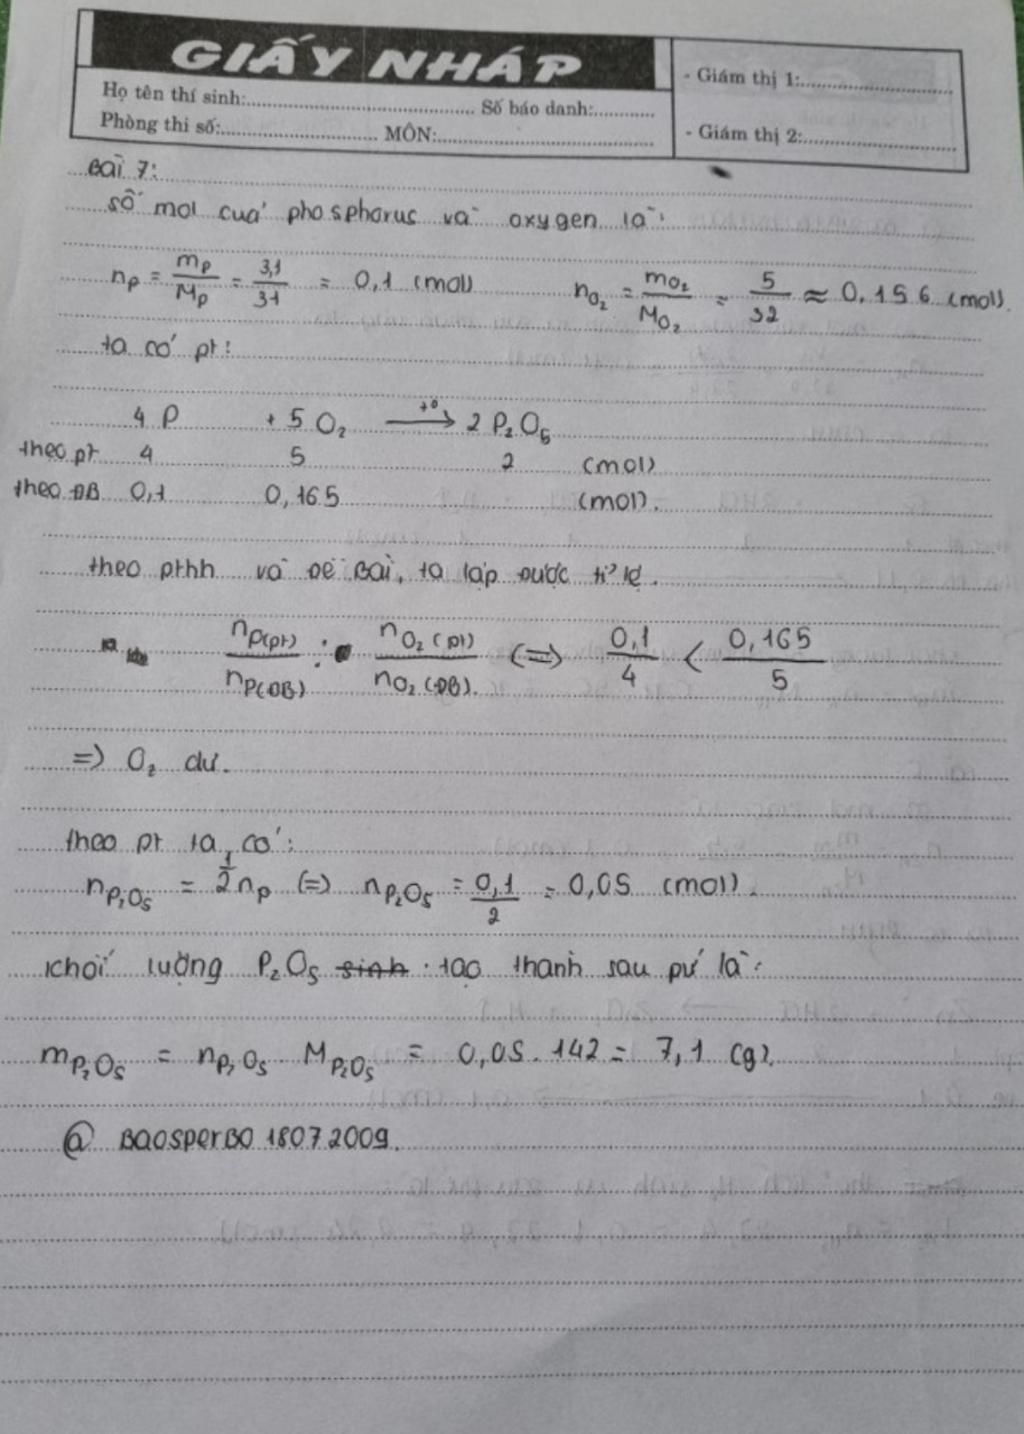 GIẤY NHÁP
Họ tên thí sinh:.......... Số báo danh:..........
Phòng thi số:.......... MÔN:..........
- Giám thị 1:..........
- Giám thị 2:..........
Bài 7:
số mol của phosphorus và oxygen là:
nP = mP/MP = 3,1/31 = 0,1 (mol) nO2 = mO2/MO2 = 5/32 ≈ 0,156 (mol).
ta có pt:
4 P + 5 O2 —t°→ 2 P2O5
theo pt 4 5 2 (mol)
theo ĐB 0,1 0,165 (mol).
theo pthh và Đề Bài, ta lập được tỉ lệ.
nP(pt)/nP(ĐB) : nO2(pt)/nO2(ĐB). <=> 0,1/4 < 0,165/5
=> O2 dư.
theo pt ta có:
nP2O5 = 1/2 nP <=> nP2O5 = 0,1/2 = 0,05 (mol).
khối lượng P2O5 sinh tạo thành sau pứ là:
mP2O5 = nP2O5 MP2O5 = 0,05.142 = 7,1 (g).
@ BAOSPERBO 18072009.